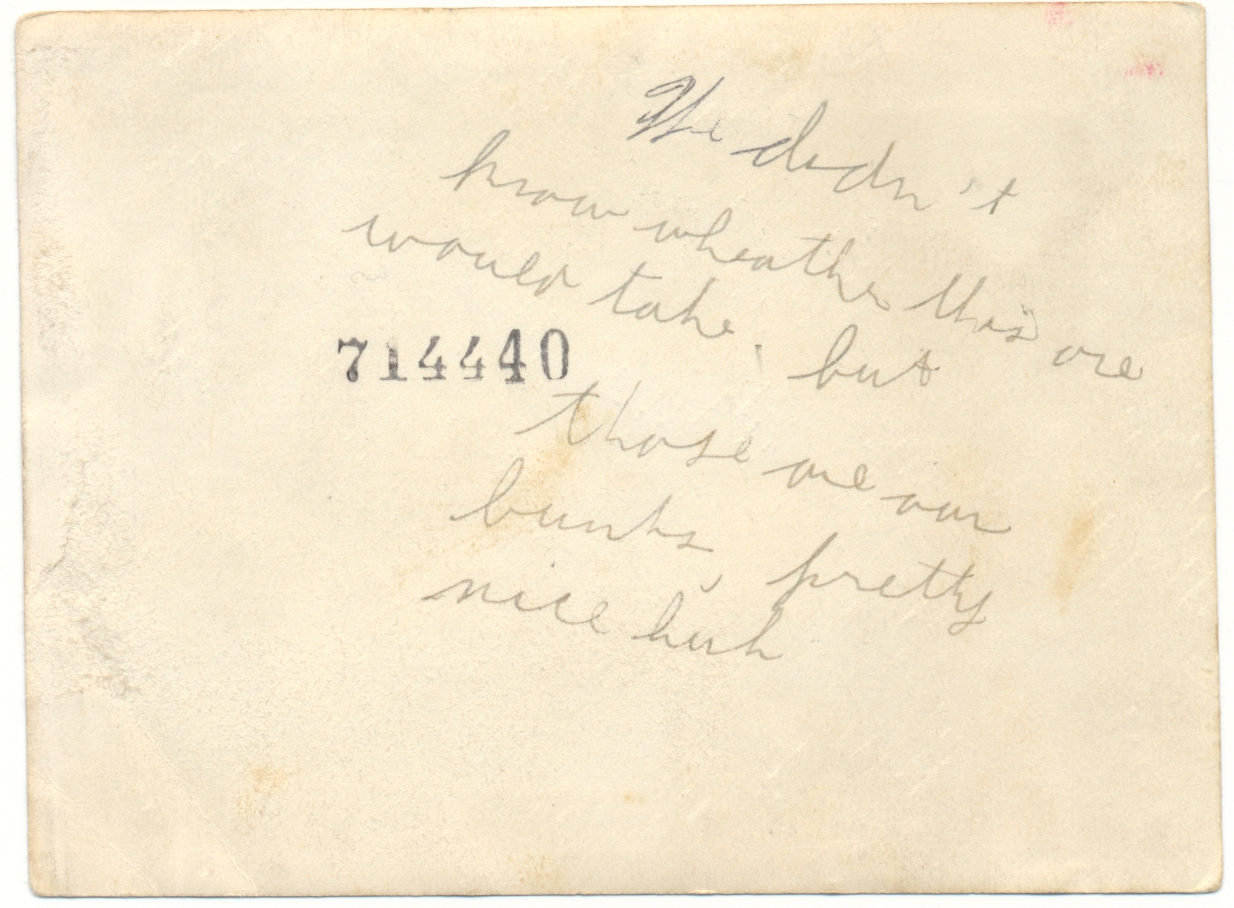 We didn't
know wheather this one
would take, but
714440
those are our
bunks, pretty
nice huh